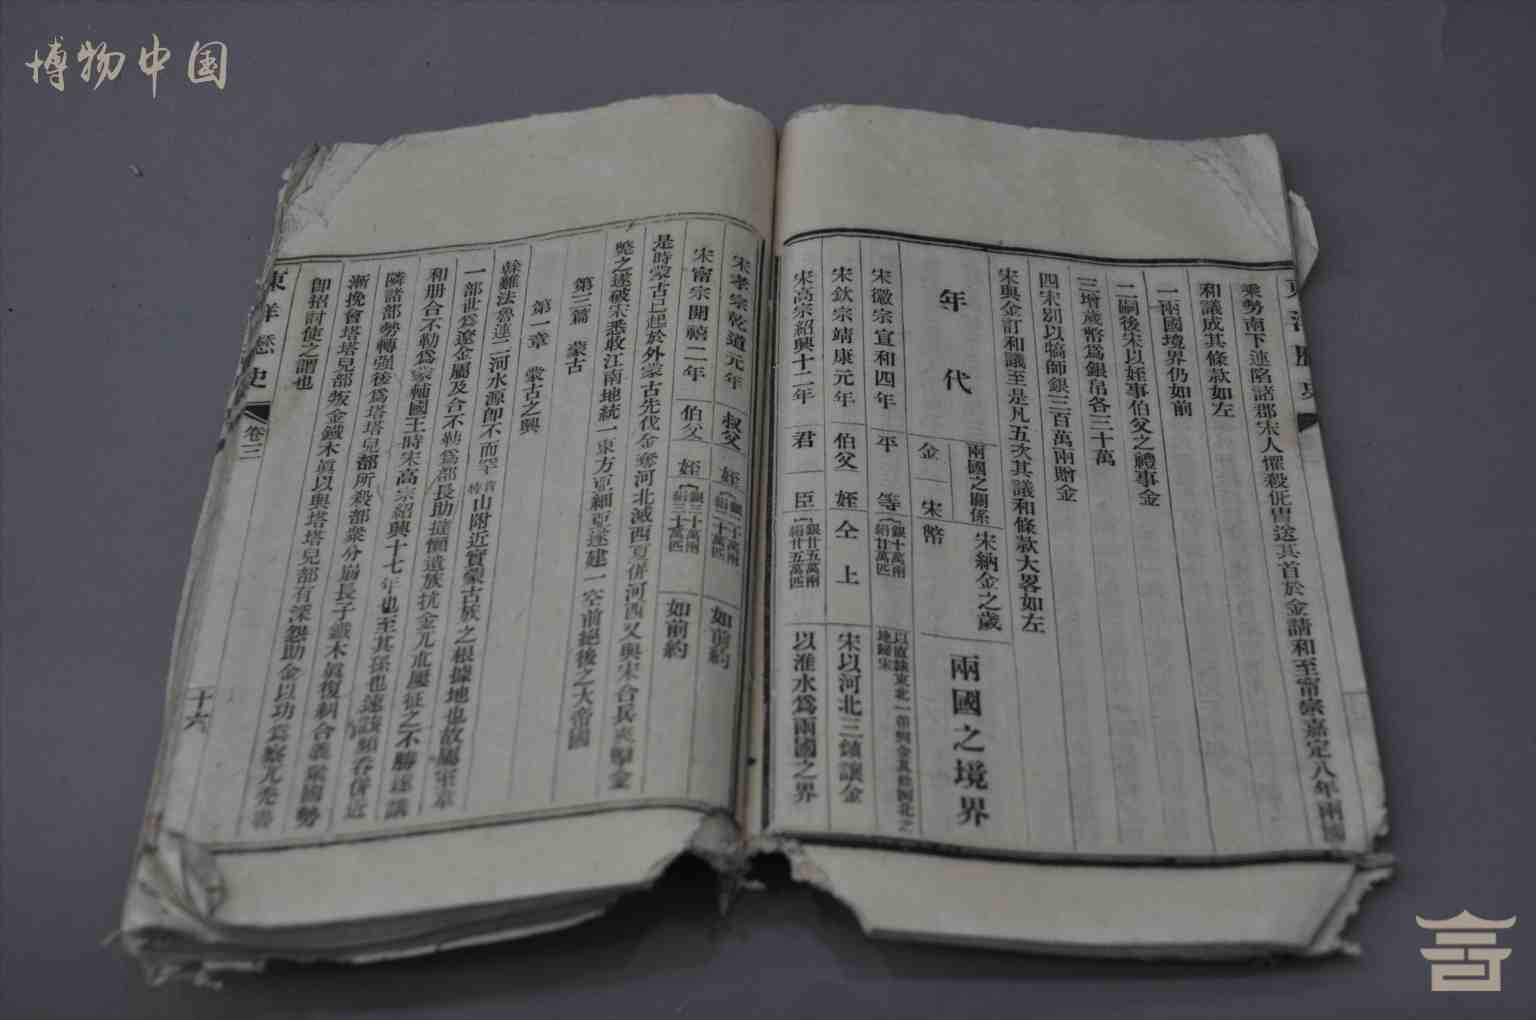 博物中国
乘勢南下連陷諸郡宋人擢殺侂胄送其首於金請和至甯宗嘉定八年兩國
和議成其條款如左
一兩國境界仍如前
二嗣後宋以姪事伯父之禮事金
三增歲幣爲銀帛各三十萬
四宋別以犒師銀三百萬兩贈金
宋與金訂和議至是凡五次其議和條款大畧如左
年代 兩國之關係 金 宋 宋納金之歲幣 兩國之境界
宋徽宗宣和四年 平等 銀十萬兩 絹廿萬匹
宋欽宗靖康元年 伯父 姪 仝上 宋以河北三鎮讓金
宋高宗紹興十二年 君 臣 銀廿五萬兩 絹廿五萬匹 以淮水爲兩國之界
宋孝宗乾道元年 叔父 姪 銀二十萬兩 絹二十萬匹 如前約
宋甯宗開禧二年 伯父 姪 銀三十萬兩 絹三十萬匹 如前約
是時蒙古已起於外蒙古先伐金奪河北滅西夏併河西又與宋合兵夾擊金
斃之遂破宋悉收江南地統一東方亞細亞遂建一空前絕後之大帝國
第三篇 蒙古
第一章 蒙古之興
斡難法魯連二河水源卽不而罕山附近實蒙古族之根據地也故屬室韋
一部世爲遼金屬及合不勒爲部長助撻懶遺族抗金兀朮屢征之不勝遂議
和册合不勒爲蒙輔國王時宋高宗紹興十七年也至其孫也速該頻吞併近
隣諸部勢轉強後爲塔塔兒部所殺部衆分崩長子鐵木眞復糾合義衆國勢
漸挽會塔塔兒部叛金鐵木眞以與塔塔兒部有深怨助金以功爲察兀禿魯
卽招討使之謂也
東洋歷史
卷三
十六